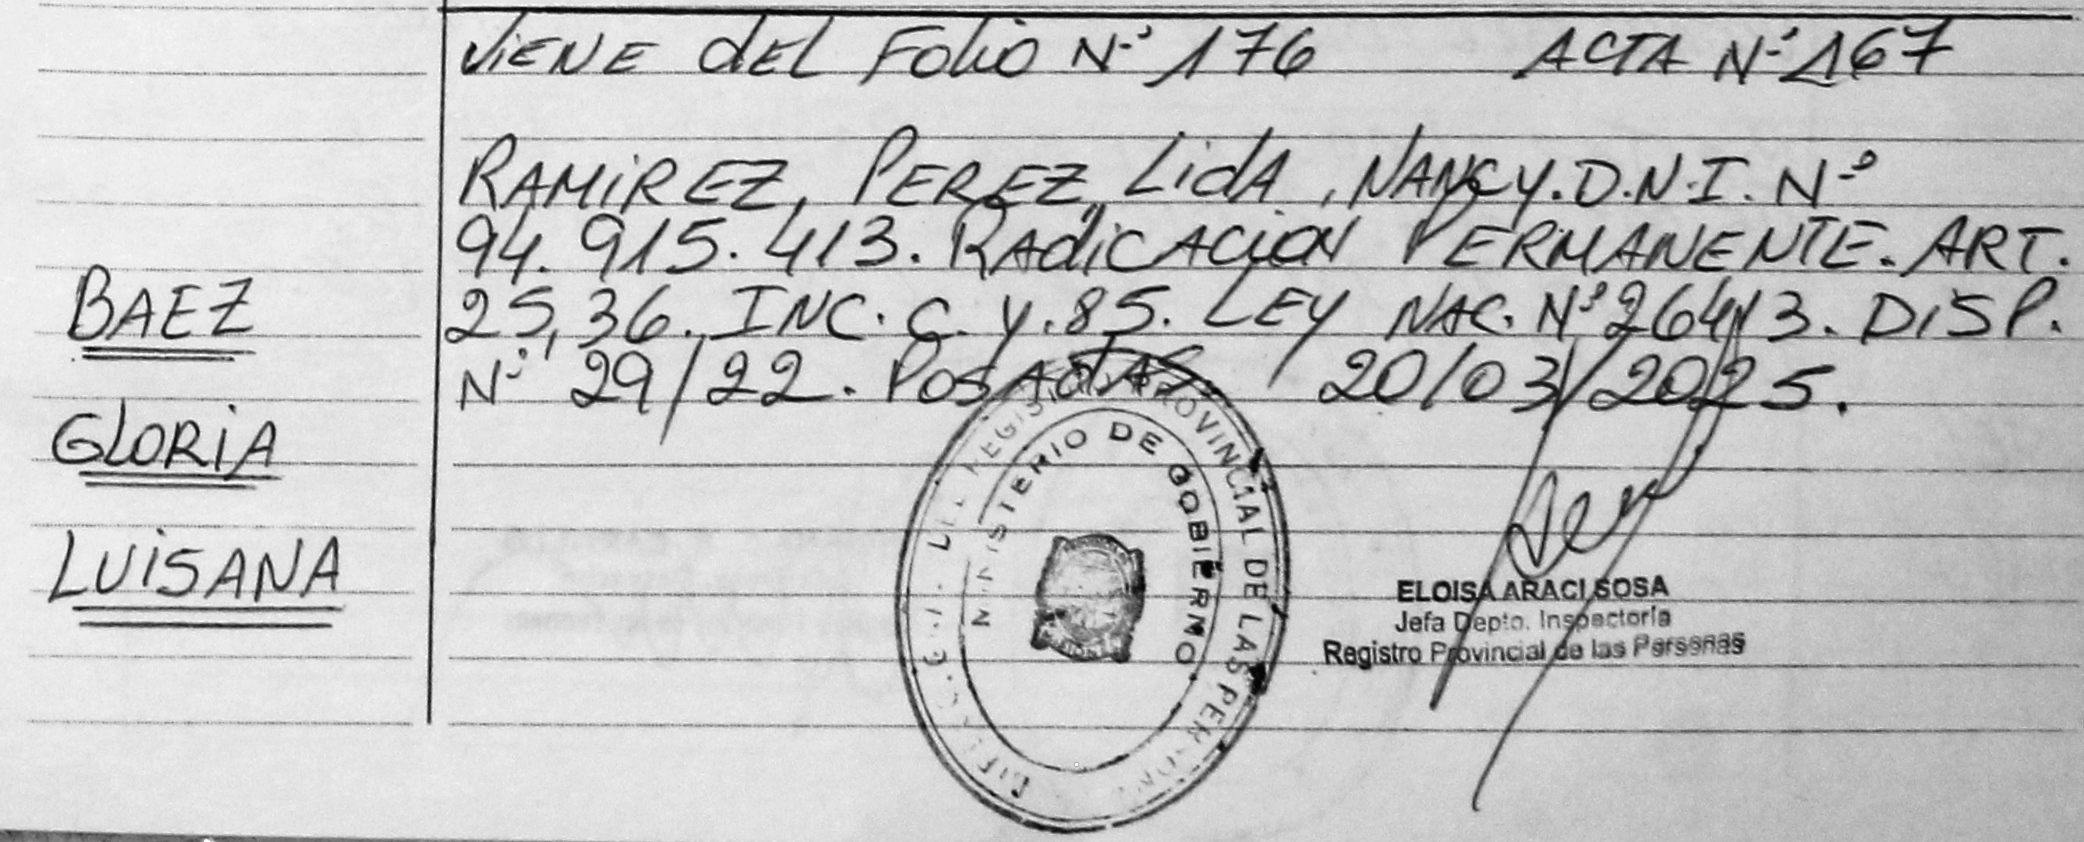 ViENE dEL Folio N-º 176 ACTA N-º 167
RAMiREZ, PEREZ, LidA, NANCY. D.N.I. N-º
94.915.413. RAdiCACiON PERMANENTE. ART.
25,36. INC. C. y. 85. LEY NAC. Nº 26413. DiSP.
Nº 29/22. POSAdAS 20/03/2025.
BAEZ
GLORiA
LUiSANA
REGIS PROVINCIAL DE LAS PER
MINISTERIO DE GOBIERNO
ELOISA ARACI SOSA
Jefa Depto. Inspectoría
Registro Provincial de las Personas